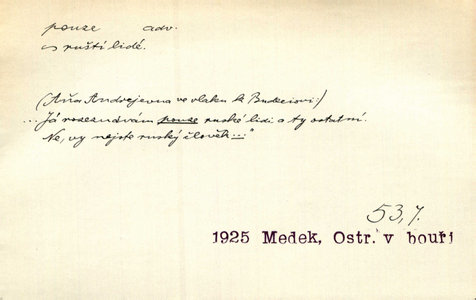 pouze adv.
ruští lidé.
(Aňa Andrejevna ve vlaku k Budeciovi:)
...Já rozeznávám pouze ruské lidi a ty ostatní.
Ne, vy nejste ruský člověk..."
53,7.
1925 Medek, Ostr. v bouři